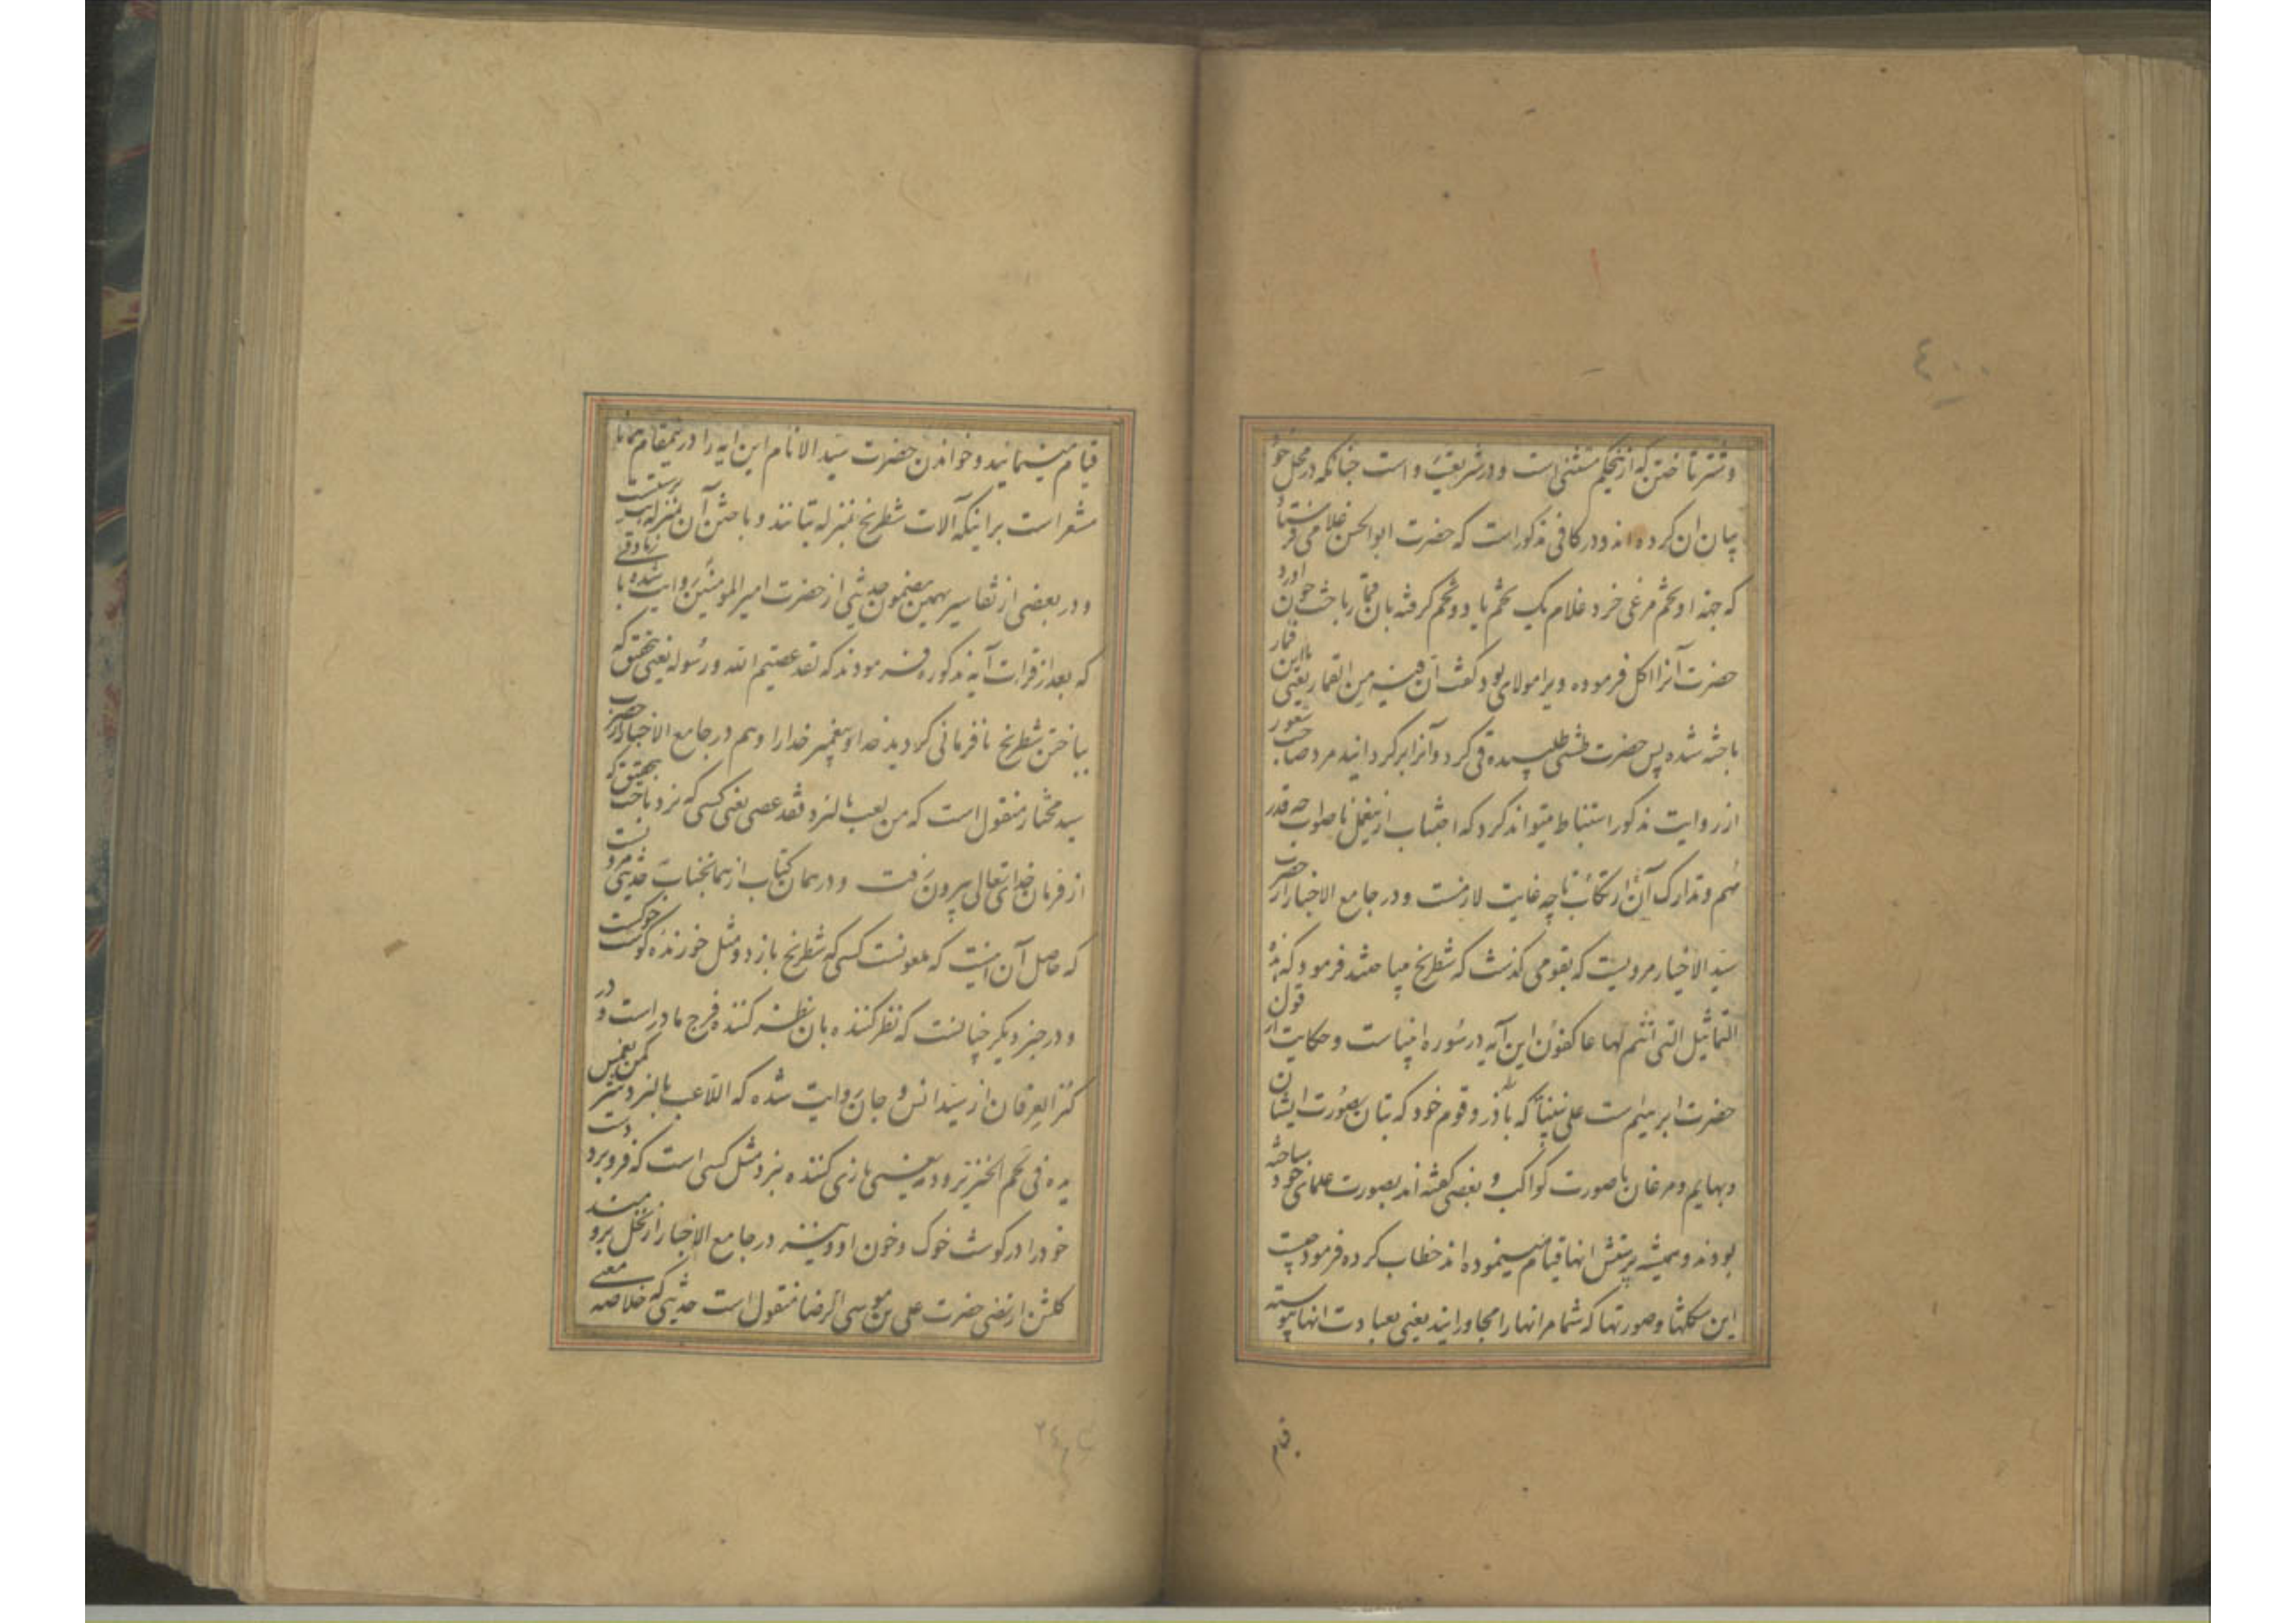 ٤٠٠
وشتر تاختن که ازینحکم مستثنی است و در شریعت رواست چنانکه در محل خود
بیان ان کرده اند و در کافی مذکور است که حضرت ابوالحسن غلامی فرستاد
که جهة او تخم مرغی خرد غلام یک تخم یا دو تخم گرفته بان قمار باخت چون اورد
حضرت آنرا اکل فرموده ویرا مولای بود گفت ان فیه من القمار یعنی با این قمار
باخته شده پس حضرت طشتی طلبیده قی کرد و آنرا بر گردانید مرد صاحب شعور
از روایت مذکور استنباط میتواند کرد که اجتناب ازینعمل ناصواب چه قدر
مهم و تدارک آن ارتکاب تا چه غایت لازمست و در جامع الاخبار از حضرت
سید الاخیار مرویست که بقومی گذشت که شطرنج میباختند فرمود که ما هذه
التماثیل التی انتم لها عاکفون این آیه در سوره انبیاست و حکایت از قول
حضرت ابرهیم است علی نبینا که بآذر و قوم خود که بتان بصورت ایشان
و بهایم و مرغان یا صورت کواکب و بعضی گفته اند بصورت علمای خود ساخته
بودند و همیشه بپرستش انها قیام مینموده اند خطاب کرده فرمود چیست
این شکلها و صورتها که شما مر انها را مجاورانید یعنی بعبادت انها پیوسته
قیام
قیام مینمائید و خواندن حضرت سید الانام این ایه را درینمقام همانا
مشعر است بر اینکه آلات شطرنج بمنزله بتانند و باختن آن بمنزله بت پرستیست
و در بعضی از تفاسیر بهمین مضمون حدیثی از حضرت امیر المومنین روایت شده با زیادتی
که بعد از قرات آیه مذکوره فرمودند که لقد عصیتم الله و رسوله یعنی بتحقیق که
بباختن شطرنج نافرمانی کردید خدا و پیغمبر خدا را و هم در جامع الاخبار از حضرت
سید مختار منقول است که من لعب بالنرد فقد عصی یعنی کسی که نرد باخت بتحقیق که
از فرمان خدای تعالی بیرون رفت و در همان کتاب از همانجناب حدیثی مرویست
که حاصل آن اینست که ملعونست کسی که شطرنج بازد و مثل خورنده گوشت خوکست
و در خبر دیگر چنانست که نظر کننده بان نظر کننده فرج مادر است و در
کنز العرفان از سید انس و جان روایت شده که اللاعب بالنردشیر کمن یغمس
یده فی لحم الخنزیر و دمه یعنی بازی کننده بنرد مثل کسی است که فرو برد دست
خود را در گوشت خوک و خون او و نیز در جامع الاخبار از نخل برومند
گلشن ارتضی حضرت علی بن موسی الرضا منقول است حدیثی که خلاصه معنی